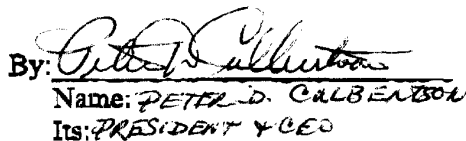 By: Peter D. Culbertson
Name: PETER D. CULBERTSON
Its: PRESIDENT & CEO